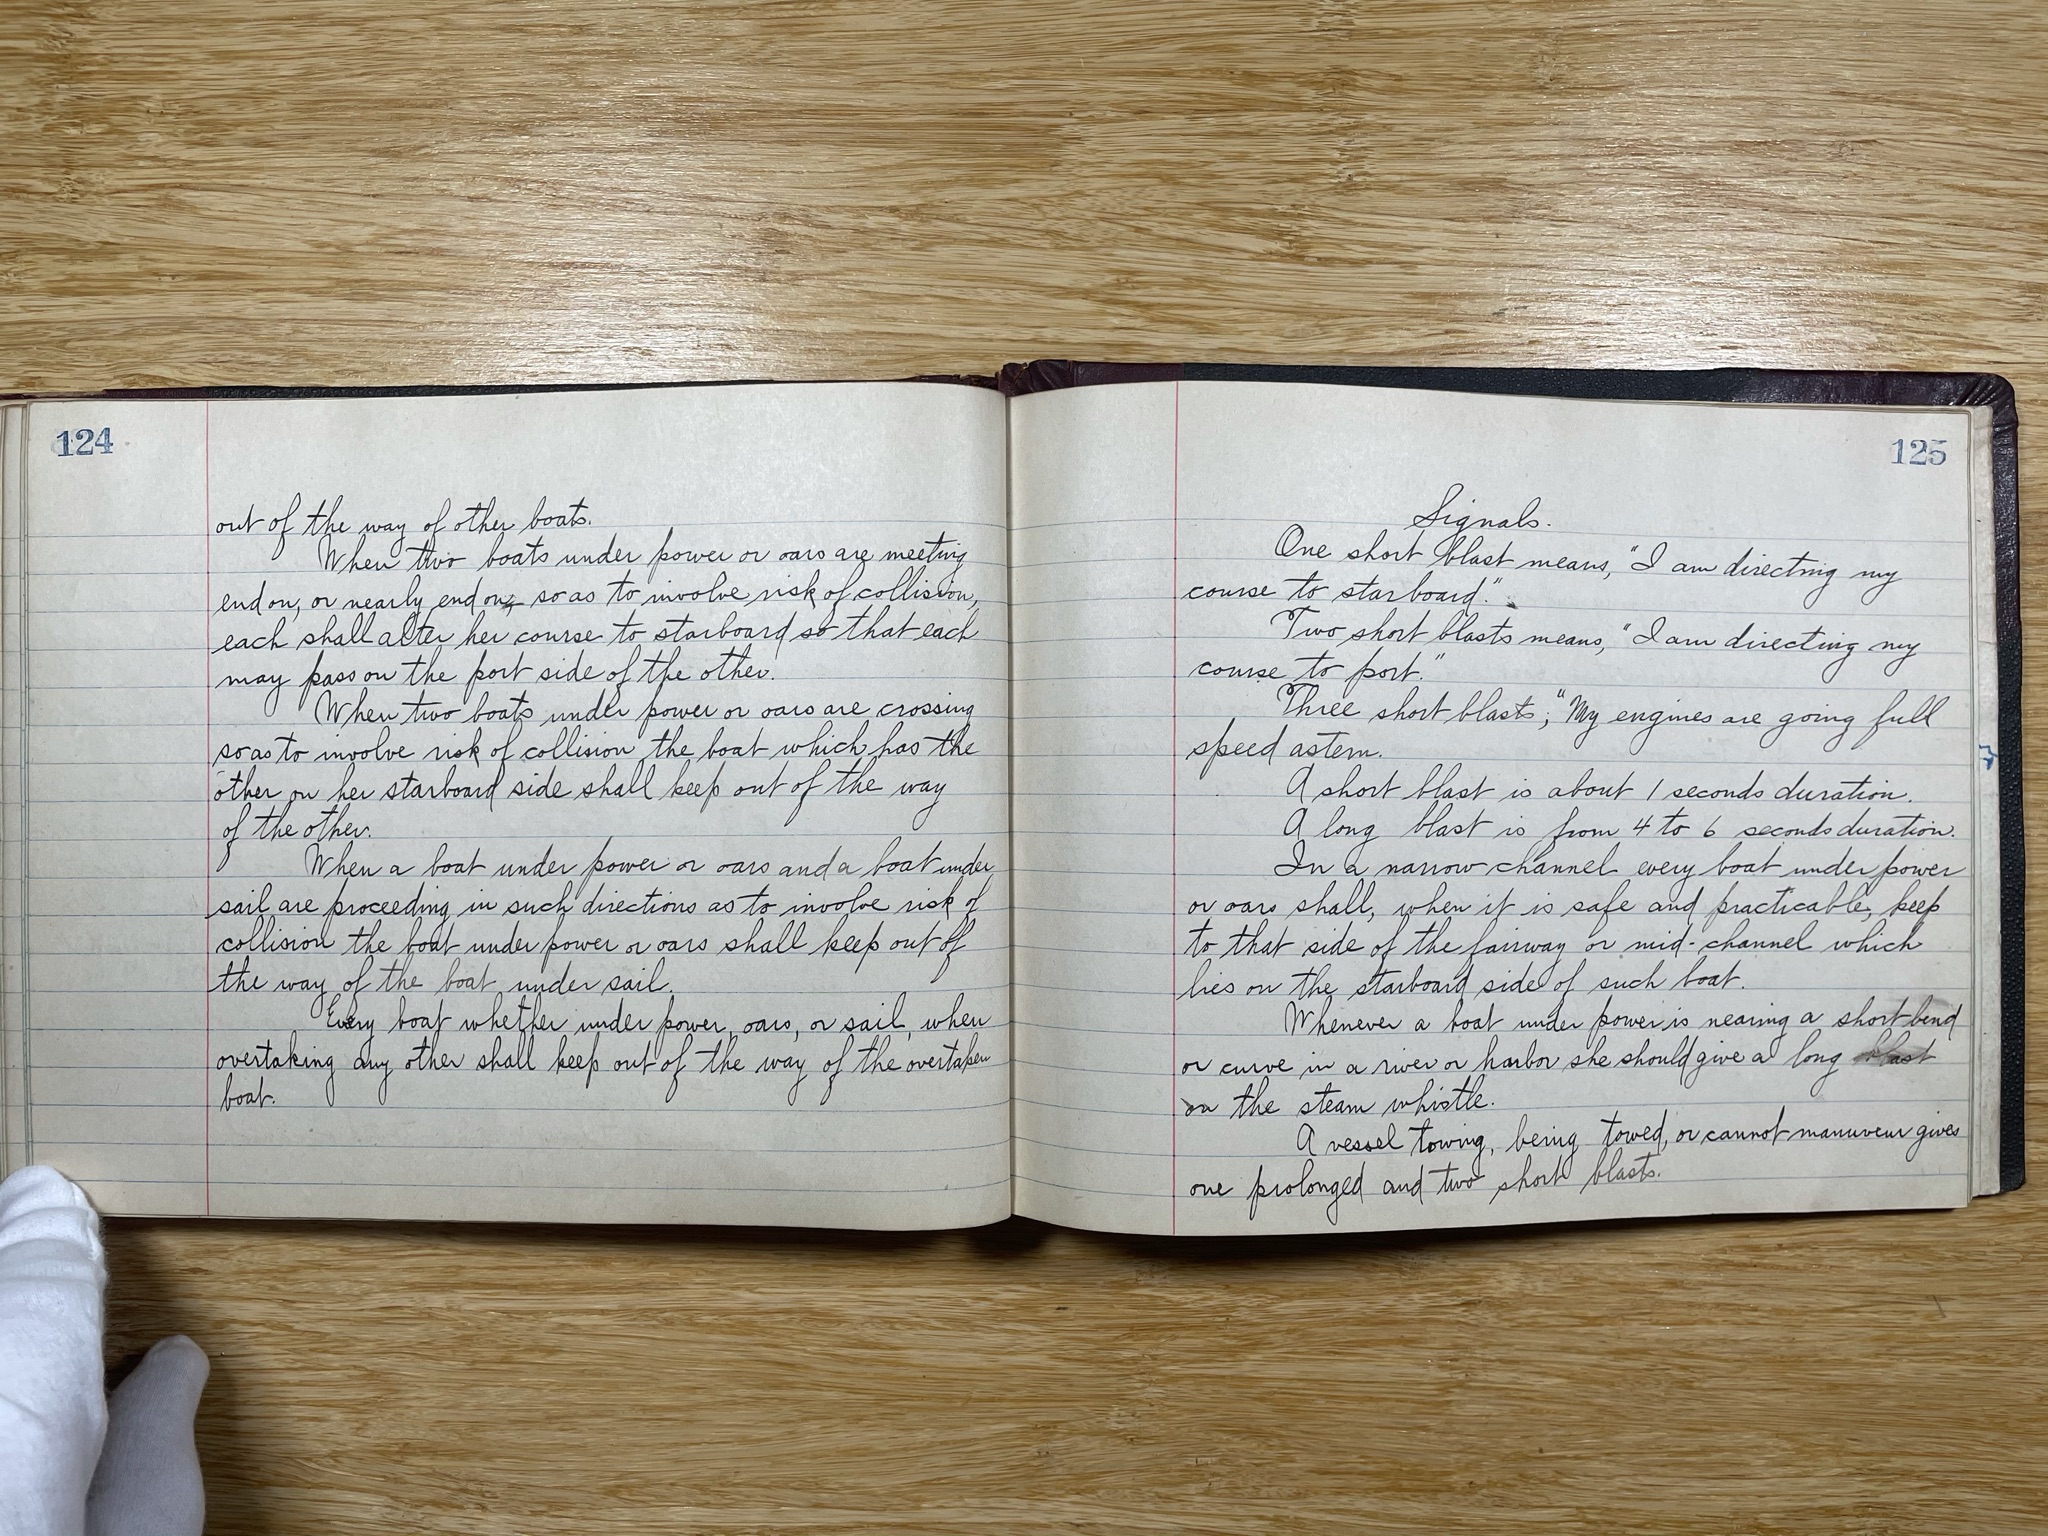 124
out of the way of other boats.
When two boats under power or oars are meeting
end on, or nearly end on, so as to involve risk of collision,
each shall alter her course to starboard so that each
may pass on the port side of the other.
When two boats under power or oars are crossing
so as to involve risk of collision the boat which has the
other on her starboard side shall keep out of the way
of the other.
When a boat under power or oars and a boat under
sail are proceeding in such directions as to involve risk of
collision the boat under power or oars shall keep out of
the way of the boat under sail.
Every boat whether under power, oars, or sail, when
overtaking any other shall keep out of the way of the overtaken
boat.
125
Signals.
One short blast means, "I am directing my
course to starboard."
Two short blasts means, "I am directing my
course to port."
Three short blasts; "My engines are going full
speed astern.
A short blast is about 1 seconds duration.
A long blast is from 4 to 6 seconds duration.
In a narrow channel every boat under power
or oars shall, when it is safe and practicable, keep
to that side of the fairway or mid-channel which
lies on the starboard side of such boat.
Whenever a boat under power is nearing a short bend
or curve in a river or harbor she should give a long blast
on the steam whistle.
A vessel towing, being towed, or cannot manuveur gives
one prolonged and two short blasts.